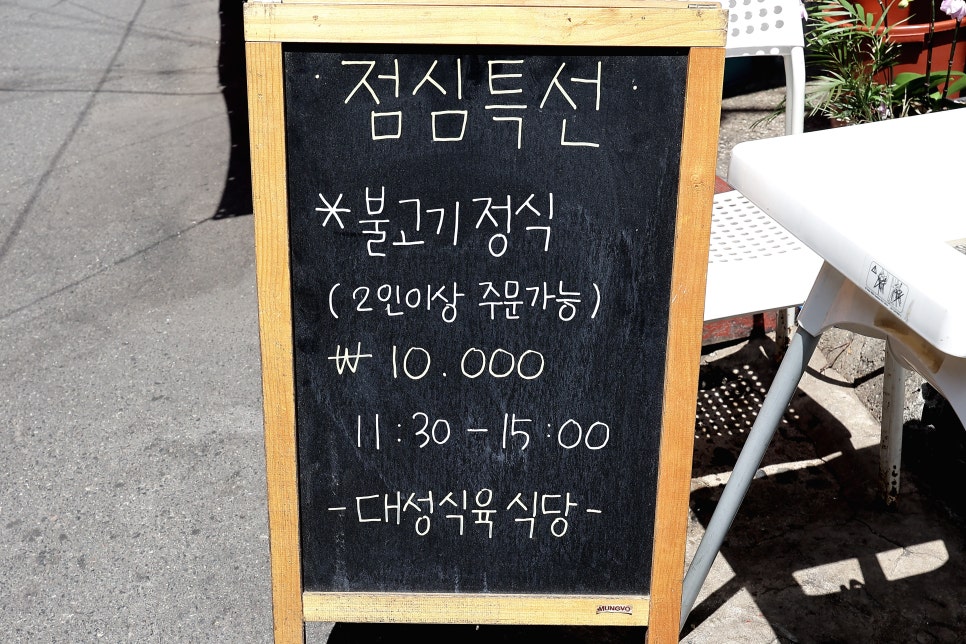 · 점심특선 ·
* 불고기 정식
(2인이상 주문가능)
₩ 10.000
11:30 - 15:00
- 대성식육 식당 -
MUNGYO